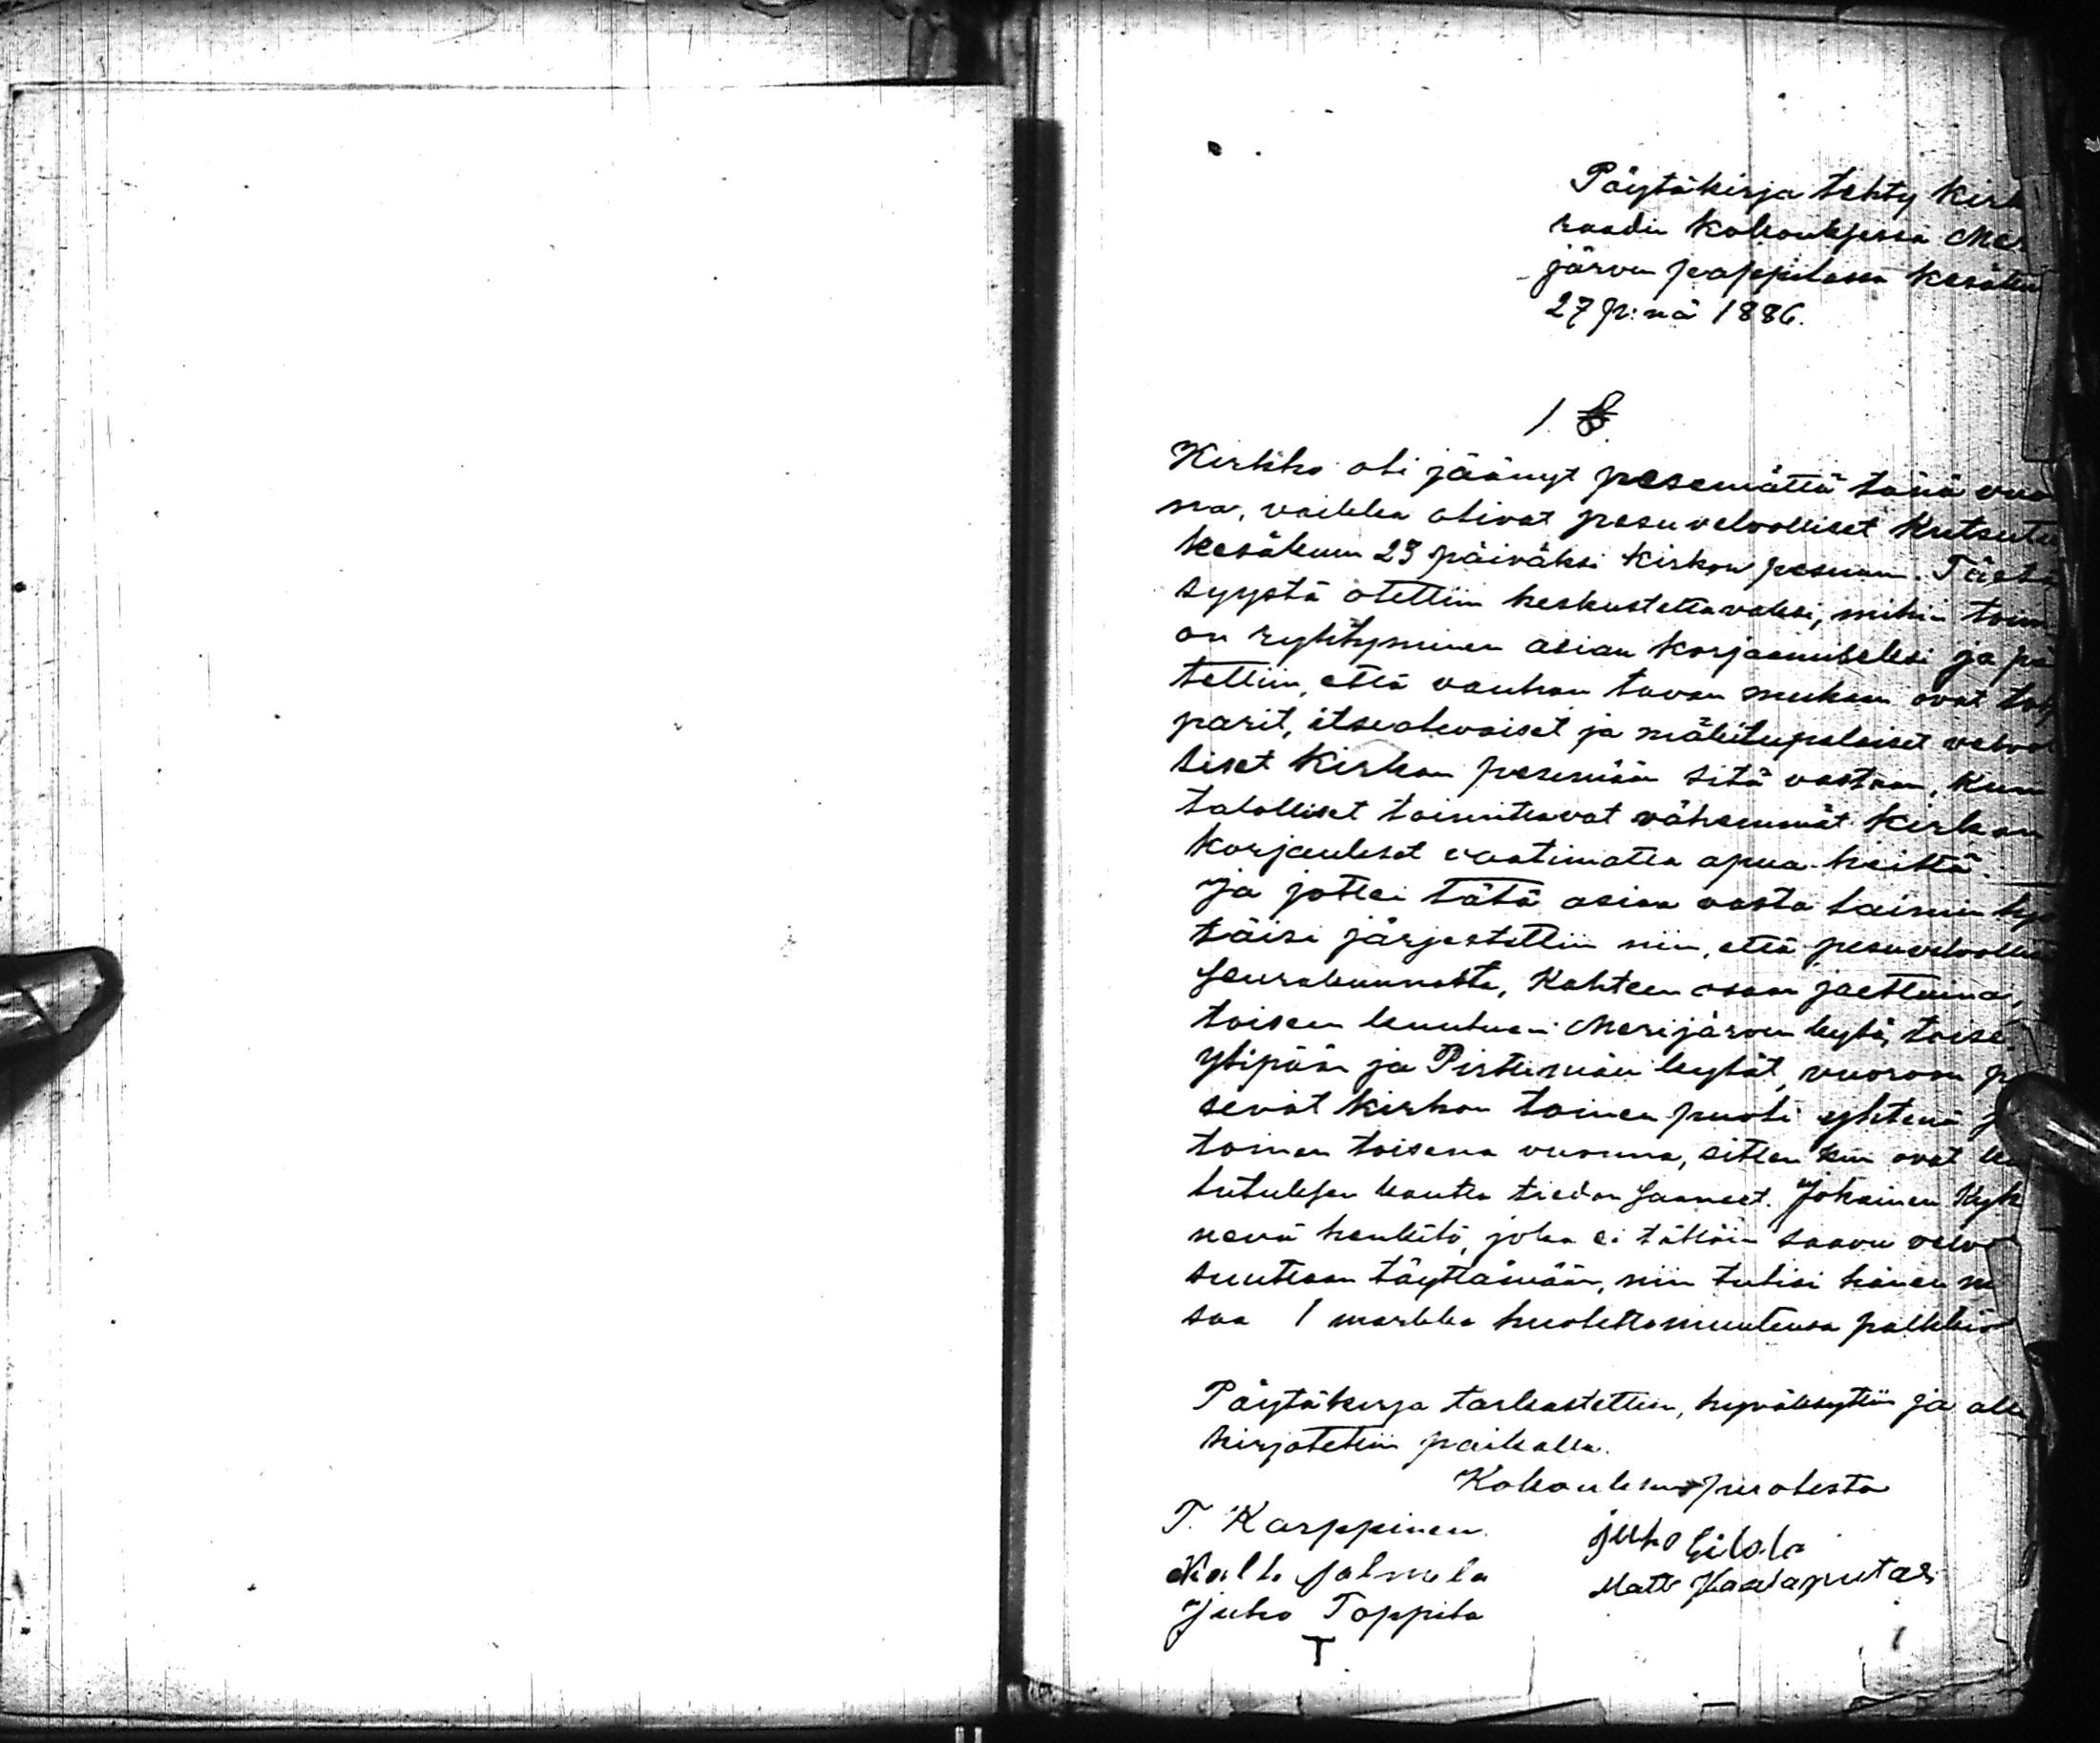 Pöytäkirja tehty Kirk
raadin kokouksessa Mer
järven pappilassa kesäku
27 p:nä 1886.
1 §.
Kirkko oli jäänyt pesemättä tänä vuo
na, vaikka olivat pesuvelvolliset kutsutu
kesäkuun 23 päiväksi kirkon pesuun. Tästä
syystä otettiin keskusteltavaksi, mihin toim
on ryhtyminen asian korjaamiseksi ja pä
tettiin, että vanhan tavan mukaan ovat torp
parit, itsealevaiset ja mäkitupalaiset velvol
liset Kirkon pesemään sitä vastaan, kun
talolliset toimittavat vähemmät kirkon
korjaukset vaatimatta apua heiltä.
Ja jottei tätä asiaa vasta laimin lyö
täisi järjestettiin niin, että pesuvelvollis
seurakunnasta, Kahteen osaan jaettuina,
toiseen kuuluen Merijärven kylä, toise
Ylipään ja Pirttimäen kylät, vuoroon pe
sevät kirkon toinen puoli yhtenä j
toinen toisena vuonna, sitten kun ovat ku
lutuksen kautta tiedon saaneet. Jokainen Kyk
nevä henkilö, joka ei tällöin saavu velvol
suuttaan täyttämään, niin tulisi hänen m
saa 1 markka huolettomuutensa palkkio
Pöytäkirja tarkastettiin, hyväksyttiin ja alle
kirjotettiin paikalla.
Kokouksen puolesta
T. Karppinen Juho
Kalle Salmela Matti
Juho Toppila
T